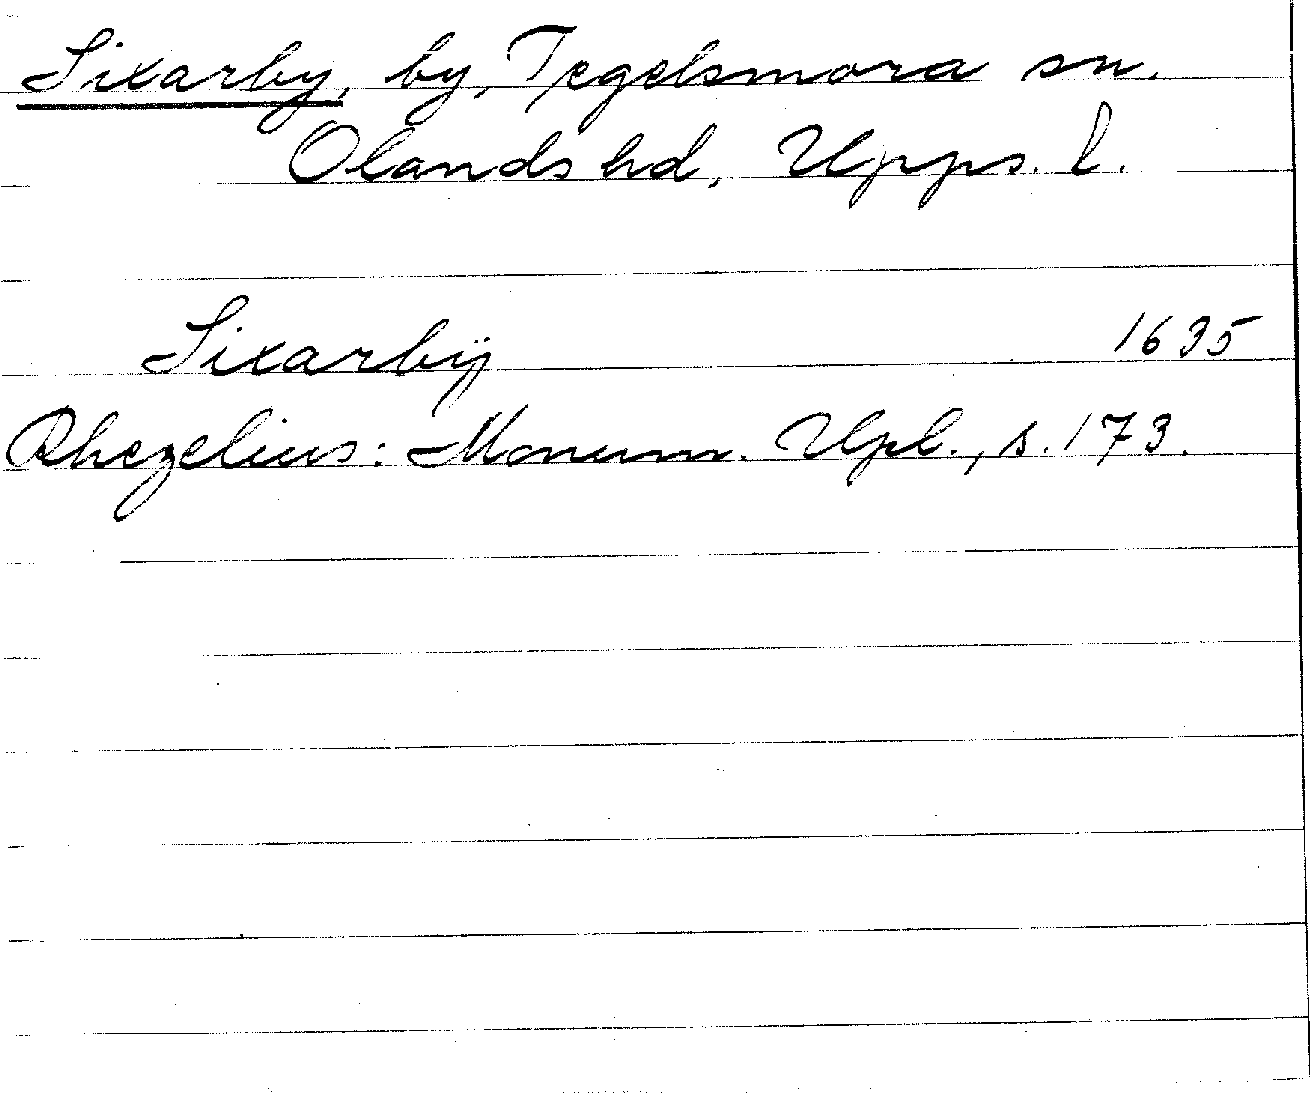 Sixarby, by, Tegelsmora sn.
Olands hd, Upps. l.
Sixarbÿ 1635
Rhezelius: Monum. Upl., s. 173.